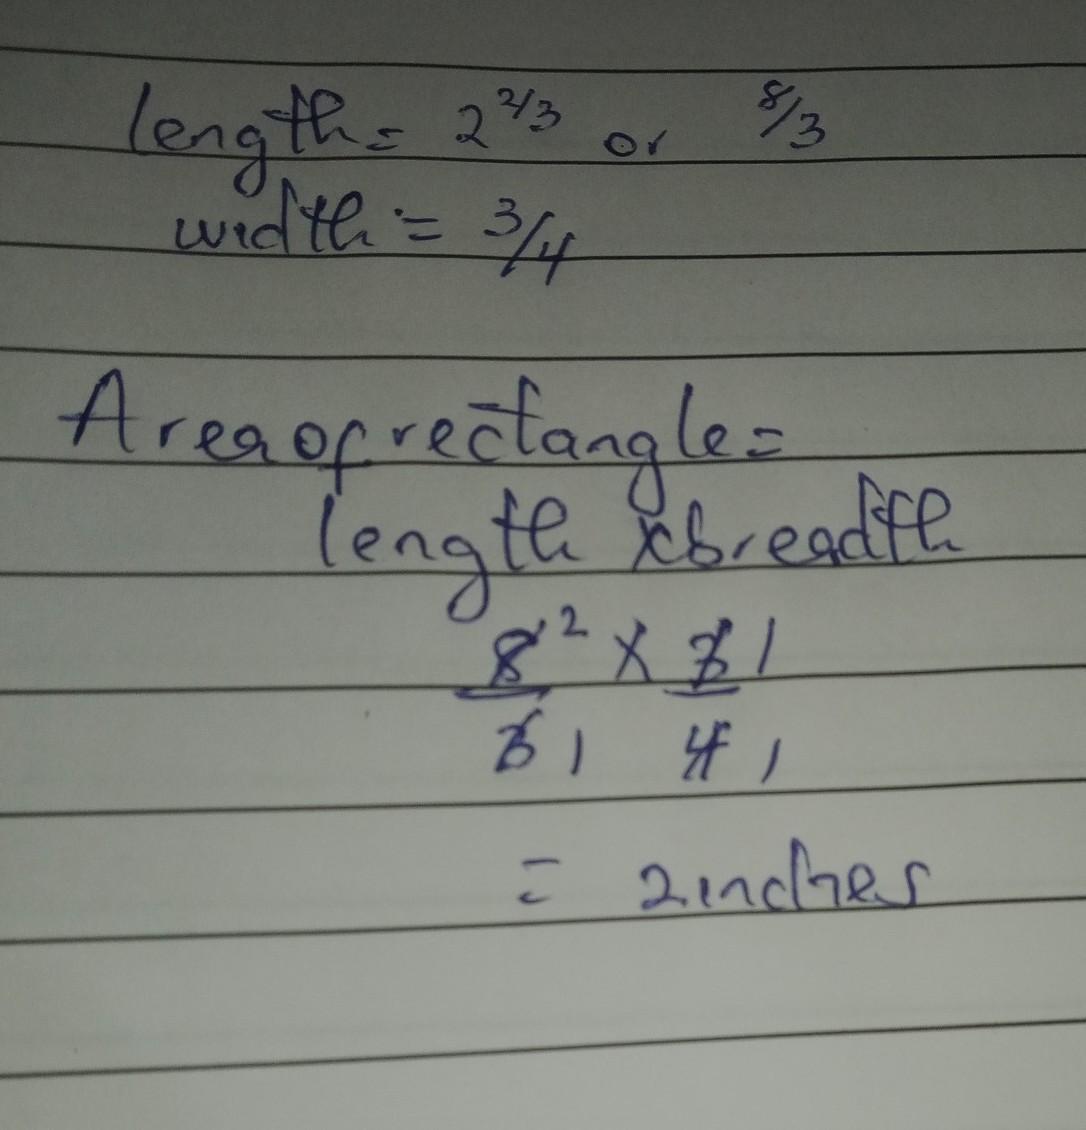 length = 2 2/3 or 8/3
width = 3/4
Area of rectangle =
length x breadth
8 2 x 3 1
3 1 4 1
= 2 inches